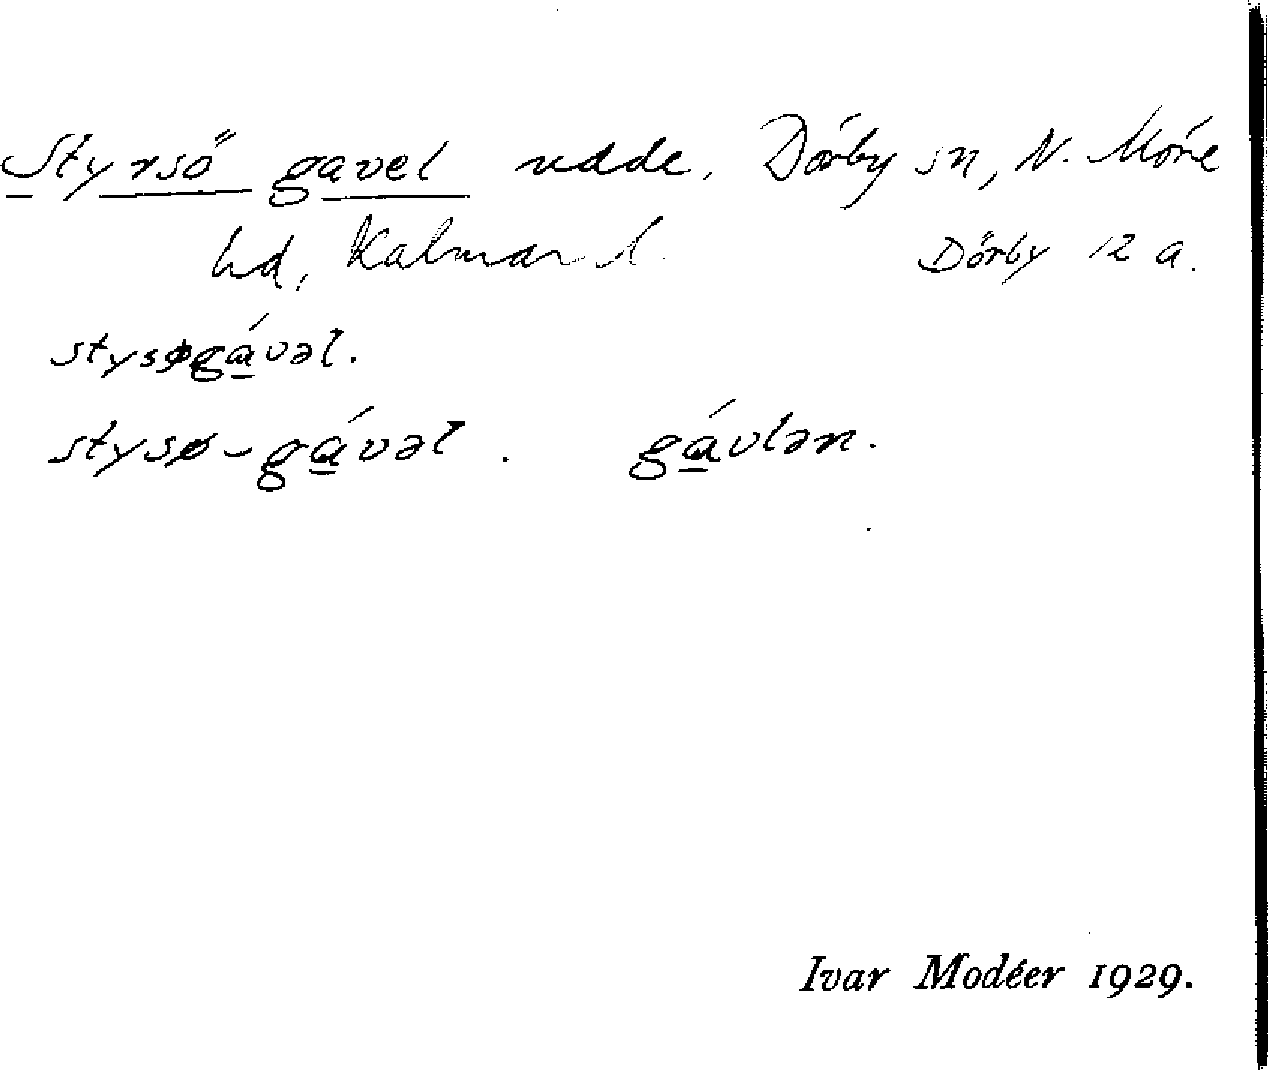 Styrsö gavel udde, Dörby sn, N. Möre
hd, Kalmar l. Dörby 12 a.
stysøgávəl.
stysø-gávəl. gávlən.
Ivar Modéer 1929.